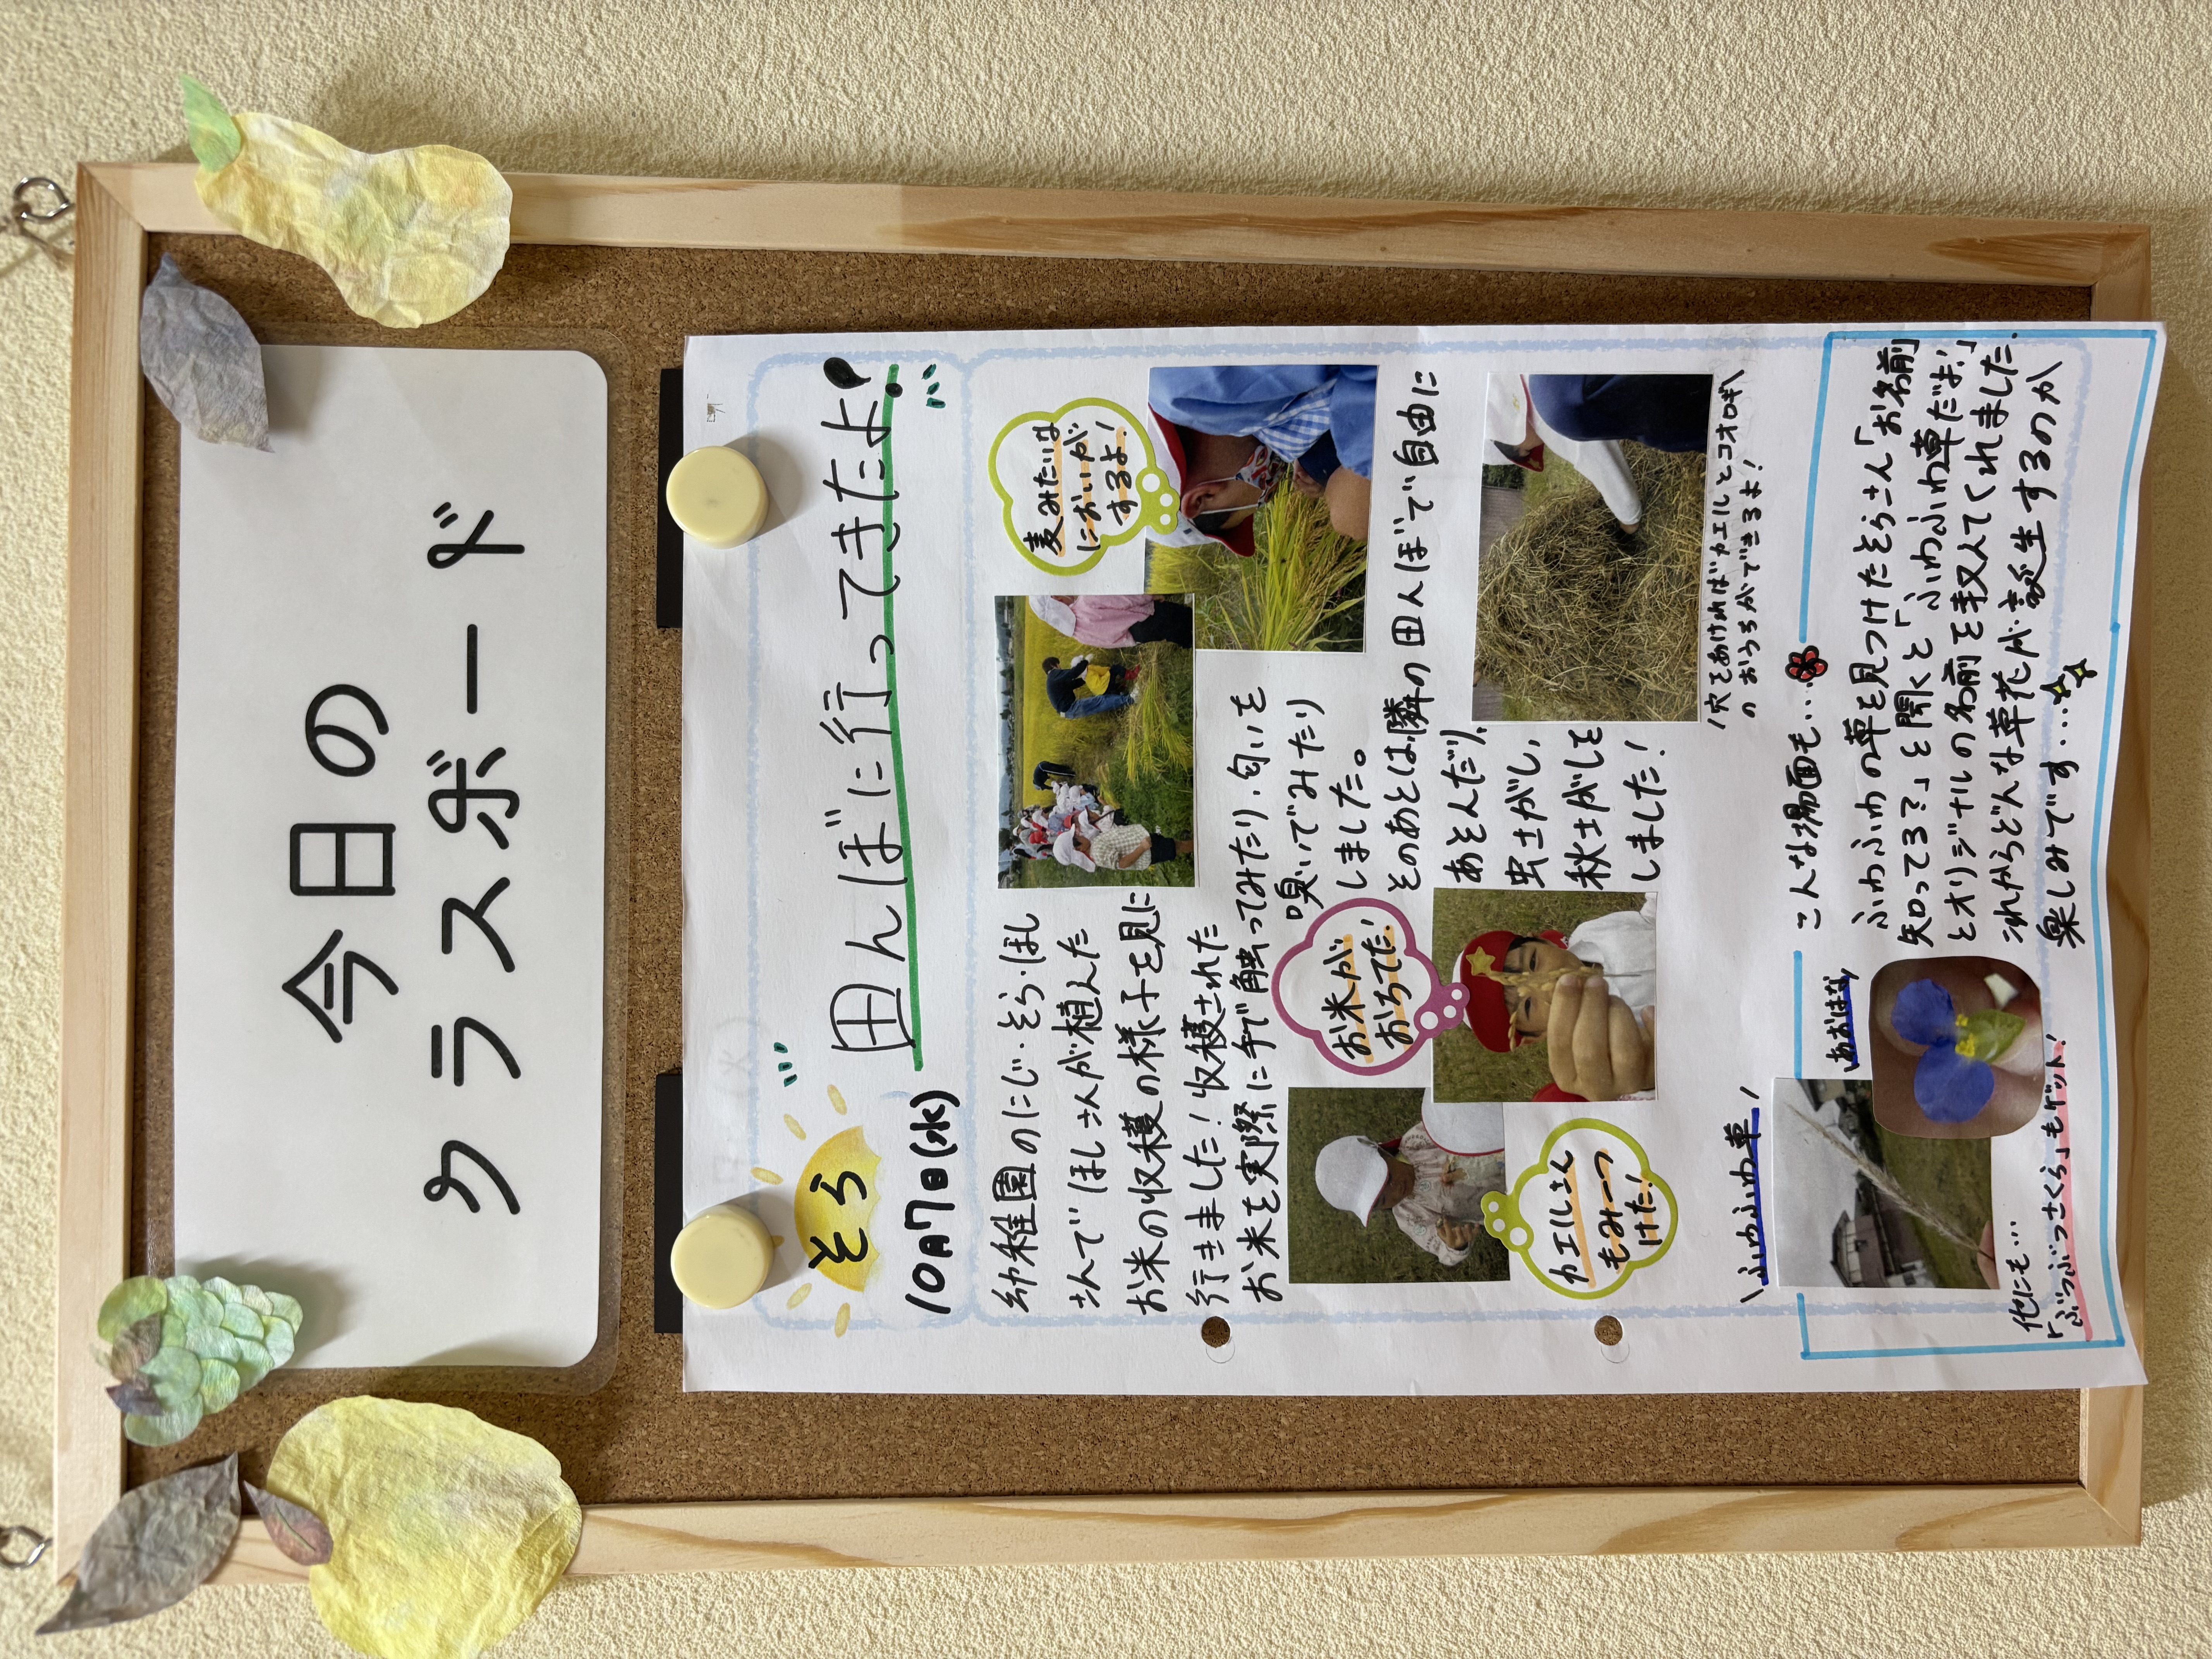 今日の
クラスボード
そら
10月7日(水)
田んぼに行ってきたよ♪
幼稚園のにじ・そら・ほし
さんで ほしさんが植えた
お米の収穫の様子を見に
行きました！収穫された
お米を実際に手で触ってみたり、匂いを
嗅いでみたり
しました。
麦みたいな
においが
するよ！
そのあとは、隣の田んぼで自由に
あそんだり、
虫さがし、
秋さがしを
しました！
お米が
おちてた！
カエルさん
もみーつ
けた！
穴をあければカエルとコオロギ
のおうちができるよ！
こんな場面も…
ふわふわ草
あおはな
ふわふわの草を見つけたそらさん「お名前
知ってる？」と聞くと「ふわふわ草だよ！」
とオリジナルの名前を教えてくれました。
これからどんな草花が誕生するのか
楽しみです…
他にも…
「ぶつぶつさくら」もゲット！